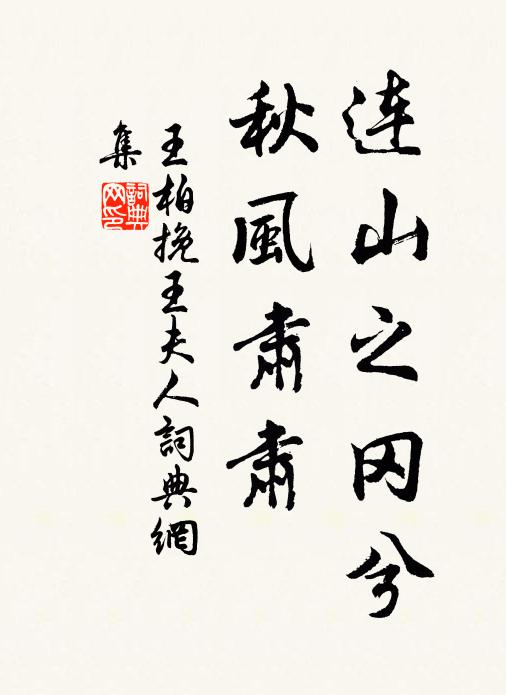 連山之冈兮
秋風肅肅
王柏挽王夫人詞典網
集
詞典
网印